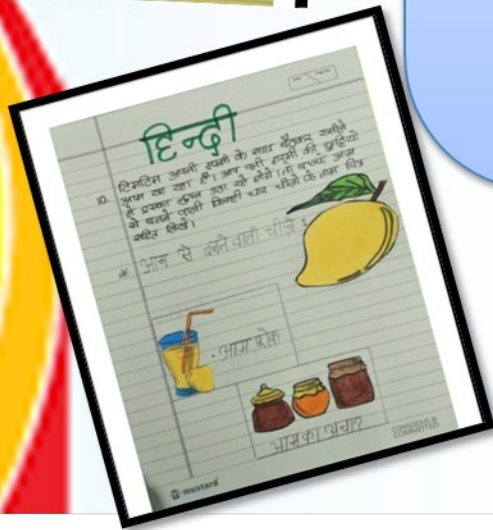 हिन्दी
10. टिमटिम अपनी मम्मी के साथ बैठकर रसीले
आम खा रहा है। आप भी गर्मी की छुट्टियों
में इसका लुत्फ उठा रहे होंगे। तो बच्चों आम
से बनने वाली किन्हीं चार चीजों के नाम चित्र
सहित लिखें।
* आम से बनने वाली चीजें :
- आम शेक
आम का अचार
mustard
CONSCIOUS &
COMMITTED